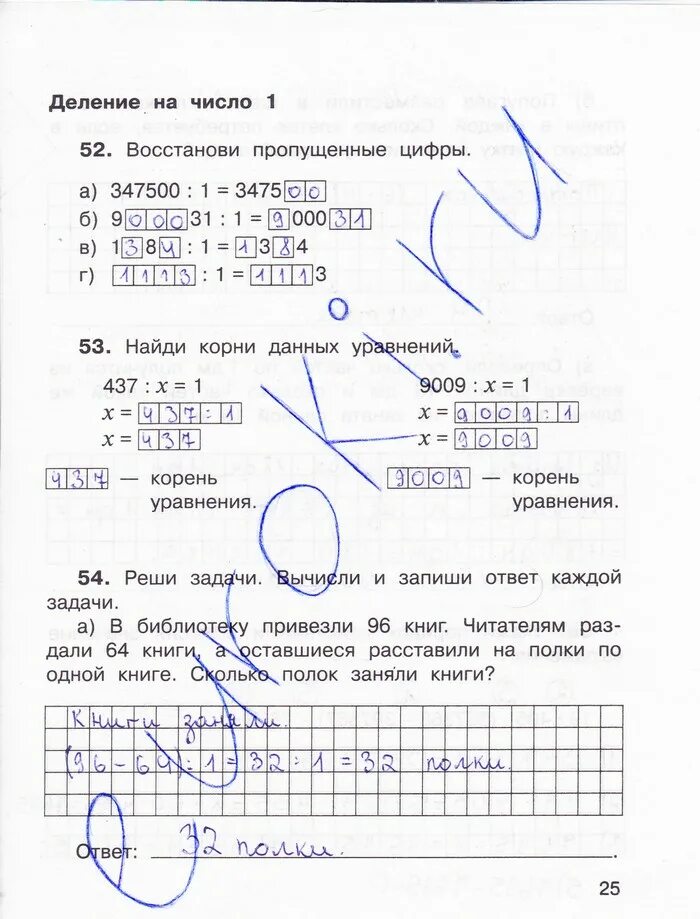 Деление на число 1
52. Восстанови пропущенные цифры.
а) 347500 : 1 = 347500
б) 900031 : 1 = 900031
в) 1384 : 1 = 1384
г) 1113 : 1 = 1113
53. Найди корни данных уравнений.
437 : x = 1
x = 437:1
x = 437
437 — корень
уравнения.
9009 : x = 1
x = 9009:1
x = 9009
9009 — корень
уравнения.
54. Реши задачи. Вычисли и запиши ответ каждой
задачи.
а) В библиотеку привезли 96 книг. Читателям раз-
дали 64 книги, а оставшиеся расставили на полки по
одной книге. Сколько полок заняли книги?
Книги заняли.
(96-64):1=32:1=32 полки.
Ответ: 32 полки.
25
urokki.ru